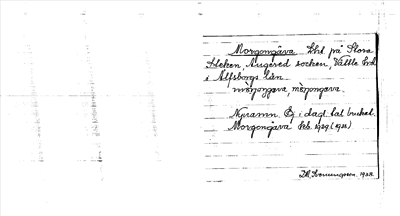 Morgongåva. Lht på Stora
Heken, Angered socken, Vättle hd
i Älfsborgs län.
mòrgongava, mòrgongava.
Nynamn. Ej i dagl. tal brukat.
Morgongåva Feb. 1929 (1921)
1932